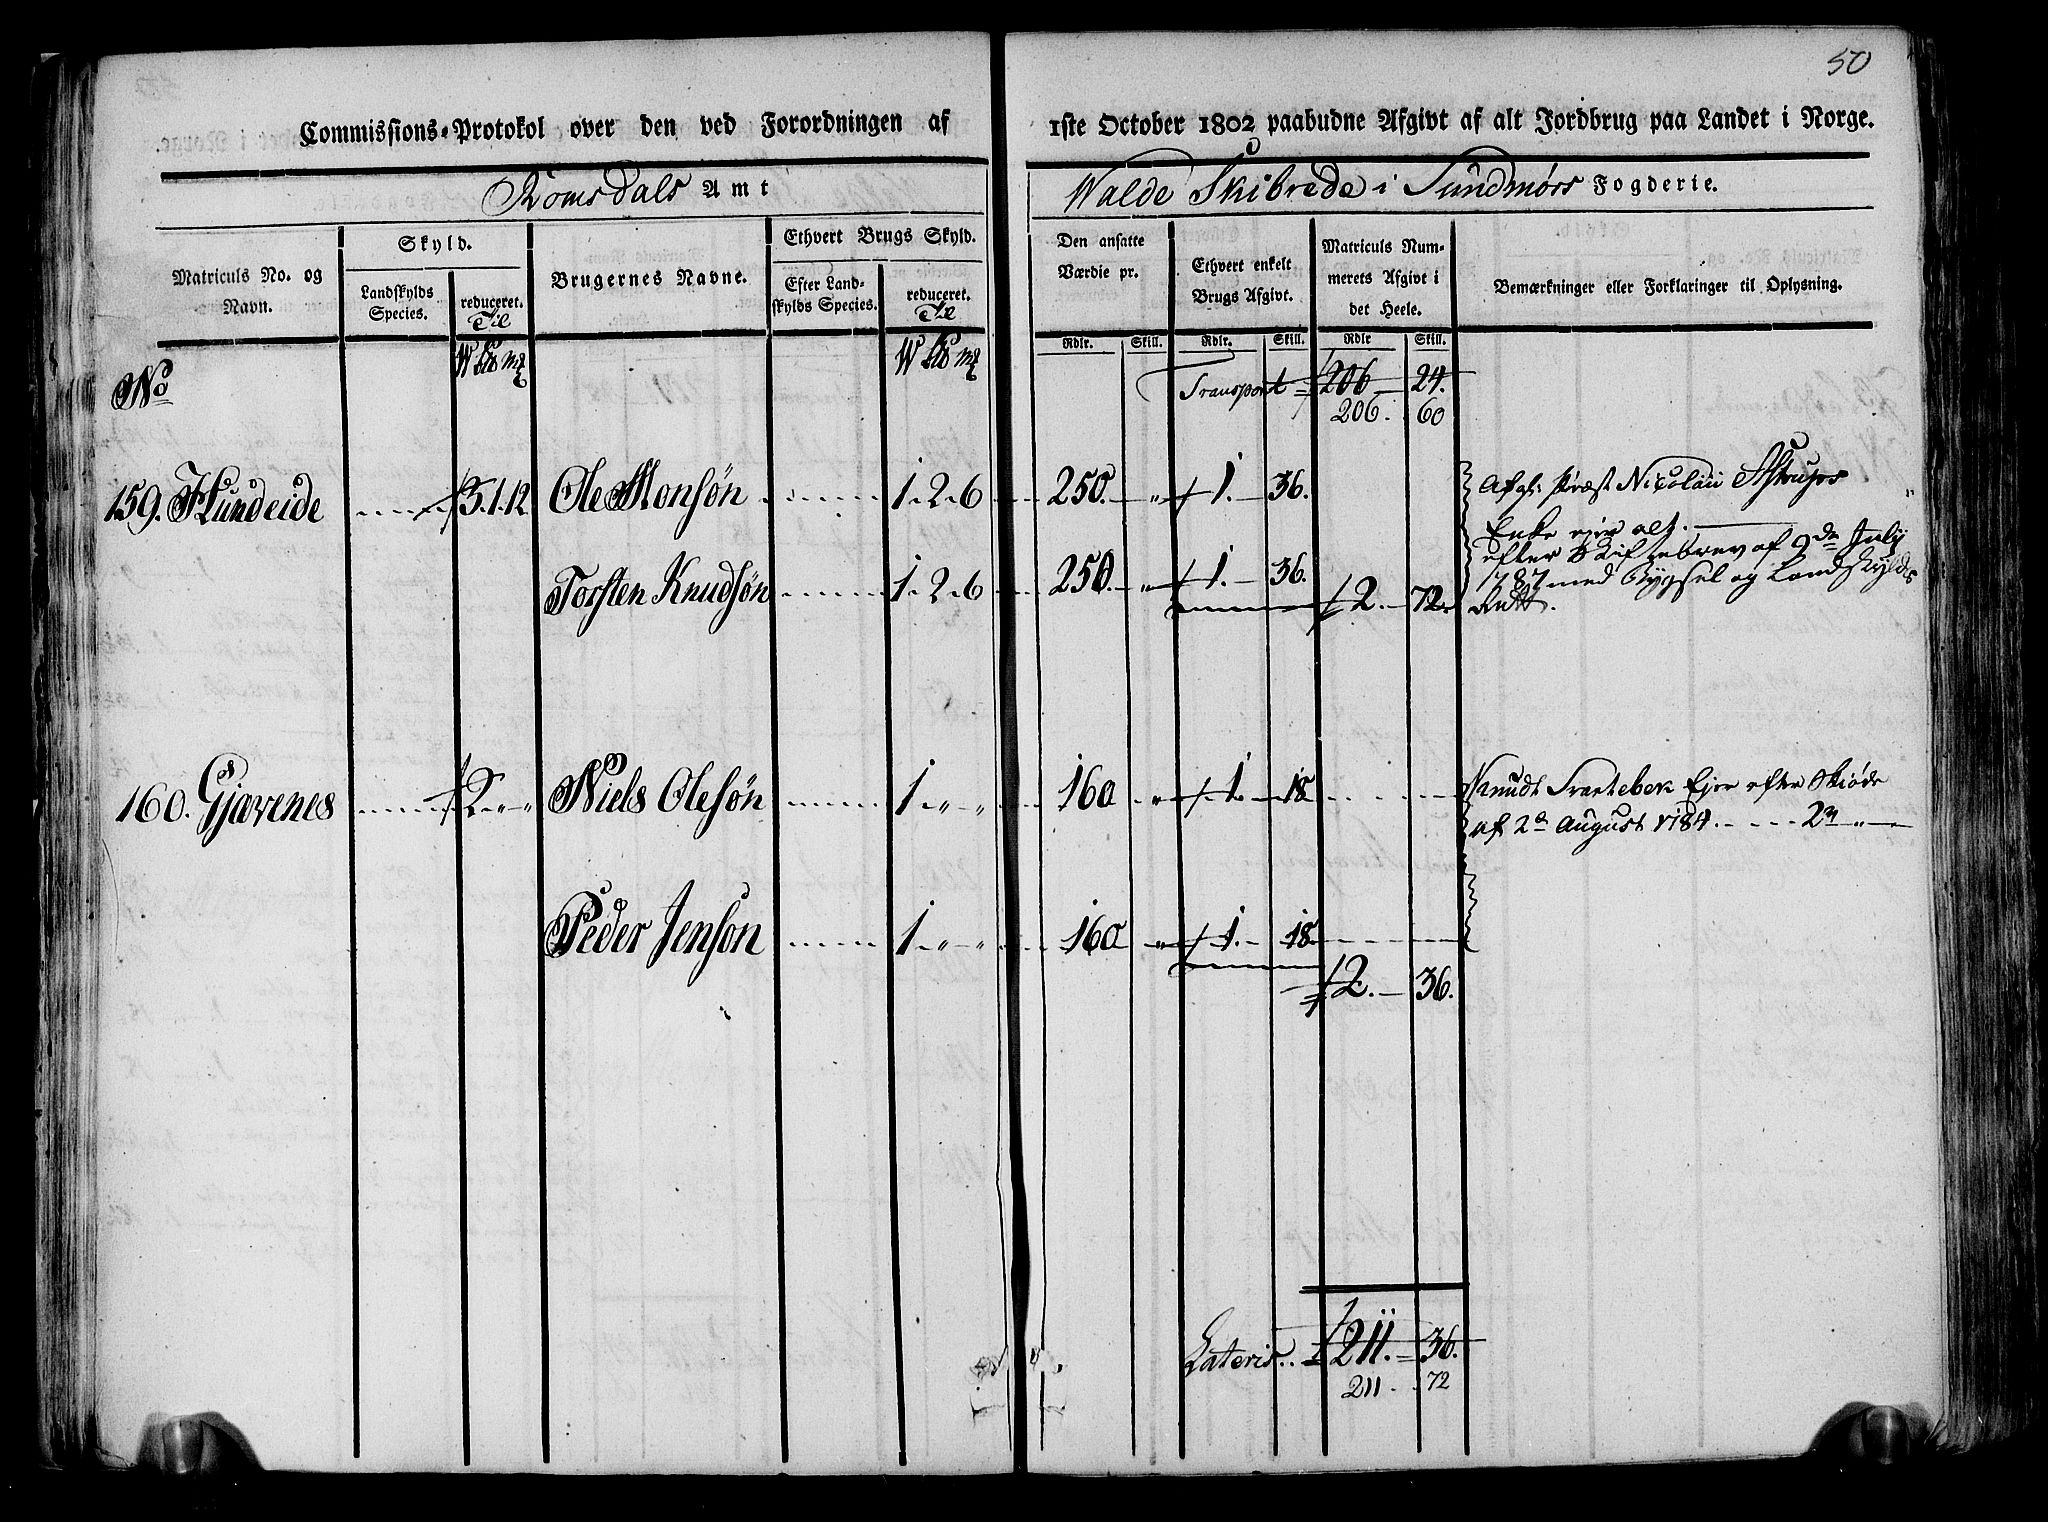 50
Commissions-Protokol over den ved Forordningen af 1ste October 1802 paabudne Afgivt af alt Jordbrug paa Landet i Norge.
Romsdals Amt Walde Skibrede i Sundmørs Fogderie.
Matriculs No. og Navn.
Skyld.
Landskylds Species.
reduceret. Til
Brugernes Navne.
Ethvert Brugs Skyld.
Efter Landskylds Species.
reduceret. Til
Den ansatte Værdie pr.
Ethvert enkelt Brugs Afgivt.
Matriculs Nummerets Afgivt i det Heele.
Bemærkninger eller Forklaringer til Oplysning.
Rdlr. Skill. Rdlr. Skill. Rdlr Skill.
No
Transport 206 24.
206. 60
159. Hundeide 3.1.12 Ole Monsøn 1-2-6 250. " 1. 36. Afg: Præst Nicolaii Astrups
Enke ejer alt.
efter Skiftebrev af 9de July
Torsten Knudsøn 1-2-6 250. " 1. 36. 2. 72. 1787 med Bygsel og Landskylds
Rett.
160. Gjævenes 2 " " Niels Olesøn 1 " " 160 " 1. 18 Knudt Svartebek Ejer efter Skiøde
af 2d August 1784. 2 "
Peder Jensøn 1 " " 160 " 1. 18
2. 36.
Lateris 211. 36.
211. 72